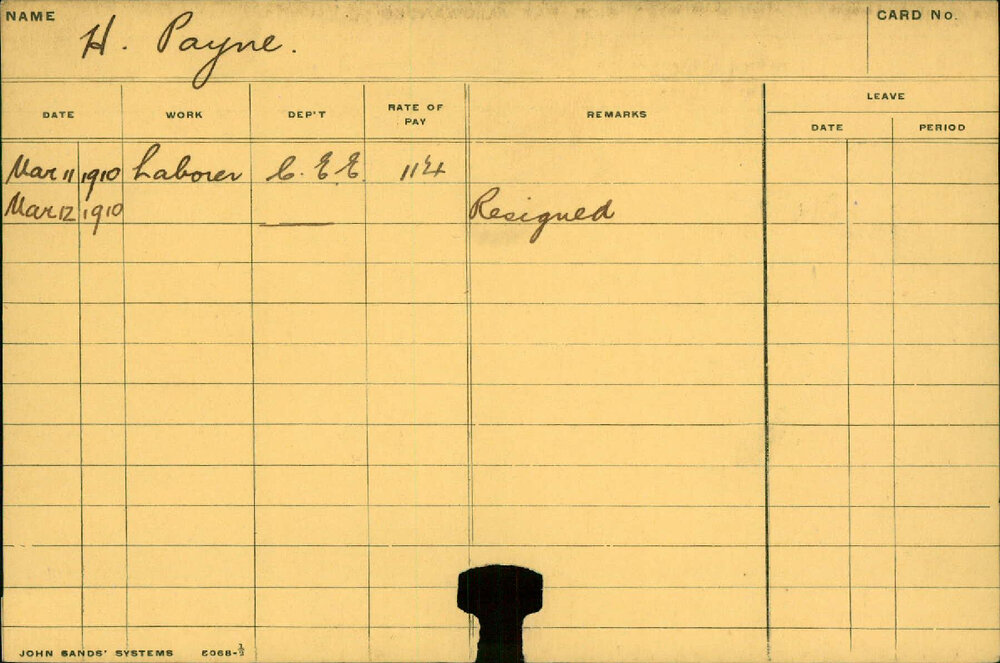 NAME H. Payne. CARD No.
DATE WORK DEP'T RATE OF PAY REMARKS LEAVE
DATE PERIOD
Mar 11 1910 Laborer C.E.E. 11/4
Mar 12 1910 —— Resigned
JOHN SANDS' SYSTEMS